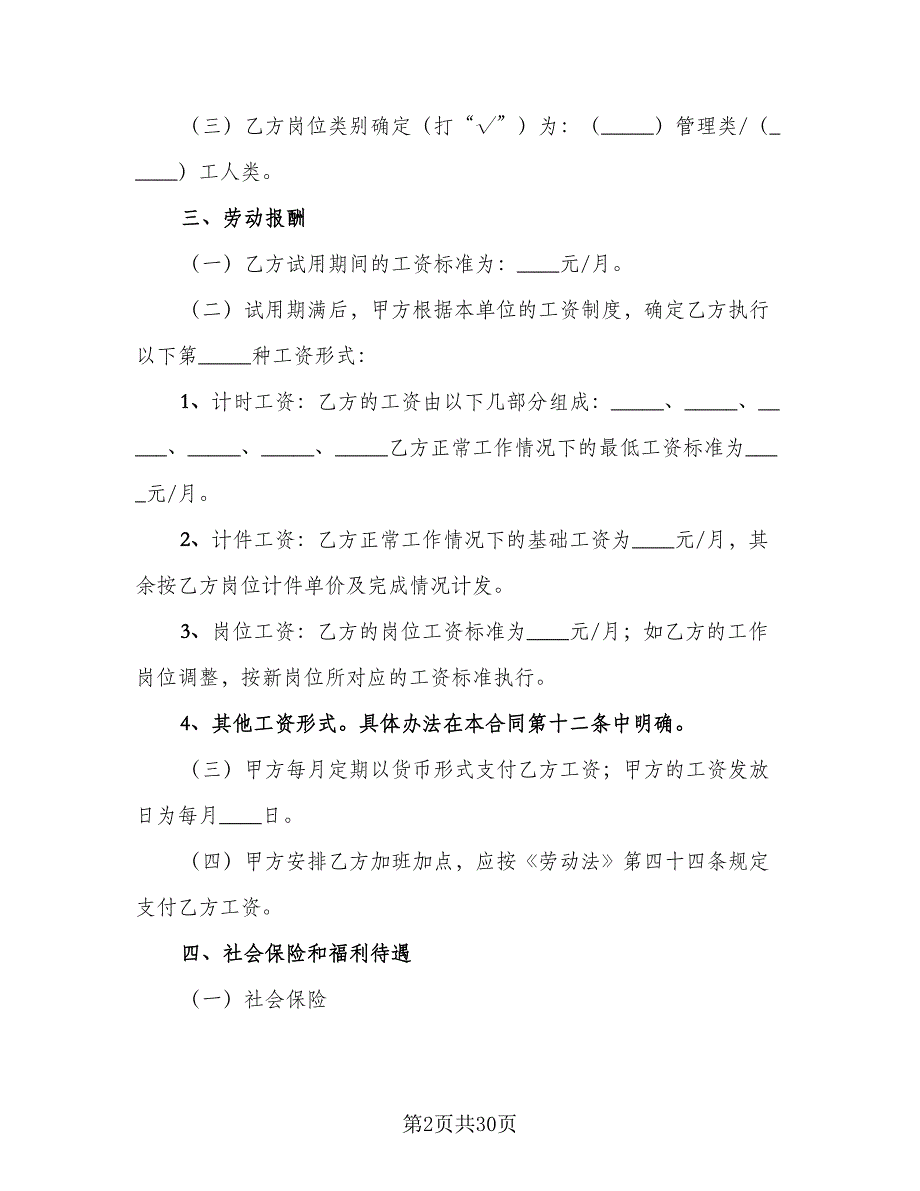 （三）乙方岗位类别确定（打“√”）为：（_____）管理类/（_
____）工人类。
三、劳动报酬
（一）乙方试用期间的工资标准为：____元/月。
（二）试用期满后，甲方根据本单位的工资制度，确定乙方执行
以下第_____种工资形式：
1、计时工资：乙方的工资由以下几部分组成：_____、_____、__
___、_____、_____、_____乙方正常工作情况下的最低工资标准为___
_元/月。
2、计件工资：乙方正常工作情况下的基础工资为____元/月，其
余按乙方岗位计件单价及完成情况计发。
3、岗位工资：乙方的岗位工资标准为____元/月；如乙方的工作
岗位调整，按新岗位所对应的工资标准执行。
4、其他工资形式。具体办法在本合同第十二条中明确。
（三）甲方每月定期以货币形式支付乙方工资；甲方的工资发放
日为每月____日。
（四）甲方安排乙方加班加点，应按《劳动法》第四十四条规定
支付乙方工资。
四、社会保险和福利待遇
（一）社会保险
第2页共30页